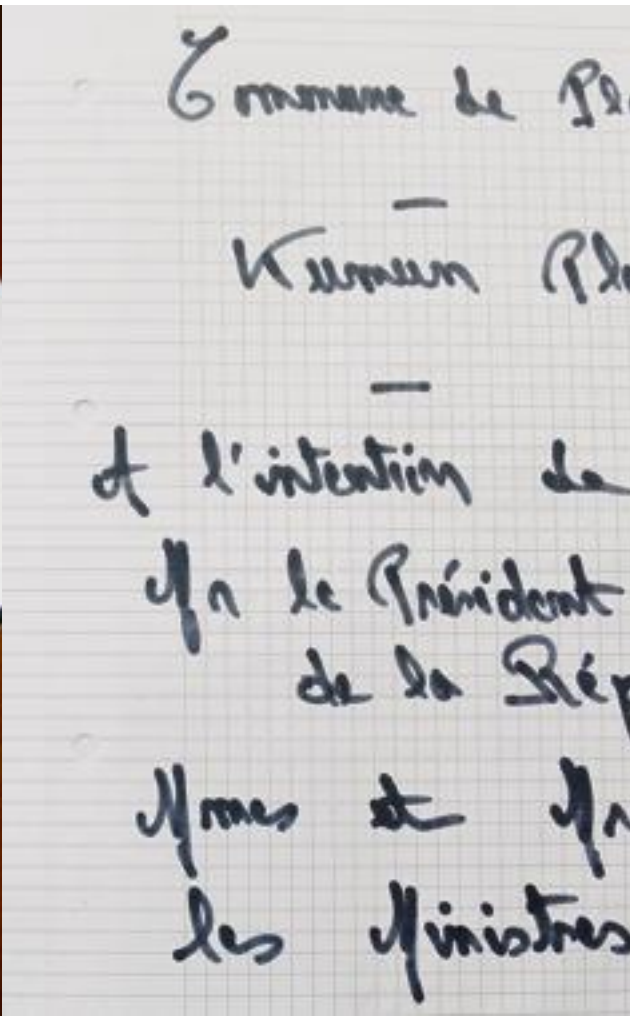 Commune de Pl
—
Kumun Pl
—
A l'intention de
Mr le Président
de la Rép
Mmes et Mr
les Ministres